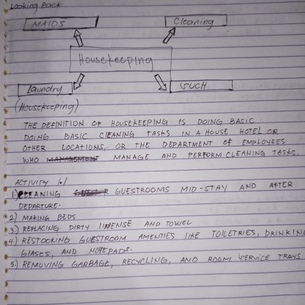 Looking back
MAIDS
Cleaning
Housekeeping
Laundry
SUCH
(Housekeeping)
THE DEFINITION OF HOUSEKEEPING IS DOING BASIC
DOING BASIC CLEANING TASKS IN A HOUSE HOTEL OR
OTHER LOCATIONS, OR THE DEPARTMENT OF EMPLOYEES
WHO MANAGE AND PERFORM CLEANING TASKS.
ACTIVITY 6/
1) CLEANING GUESTROOMS MID-STAY AND AFTER
DEPARTURE.
2) MAKING BEDS
3) REPLACING DIRTY LINENSE AND TOWEL
4) RESTOCKING GUESTROOM AMENITIES LIKE TOILETRIES, DRINKING
GLASES, AND NOTEPADS.
5) REMOVING GARBAGE, RECYCLING, AND ROOM SERVICE TRAYS